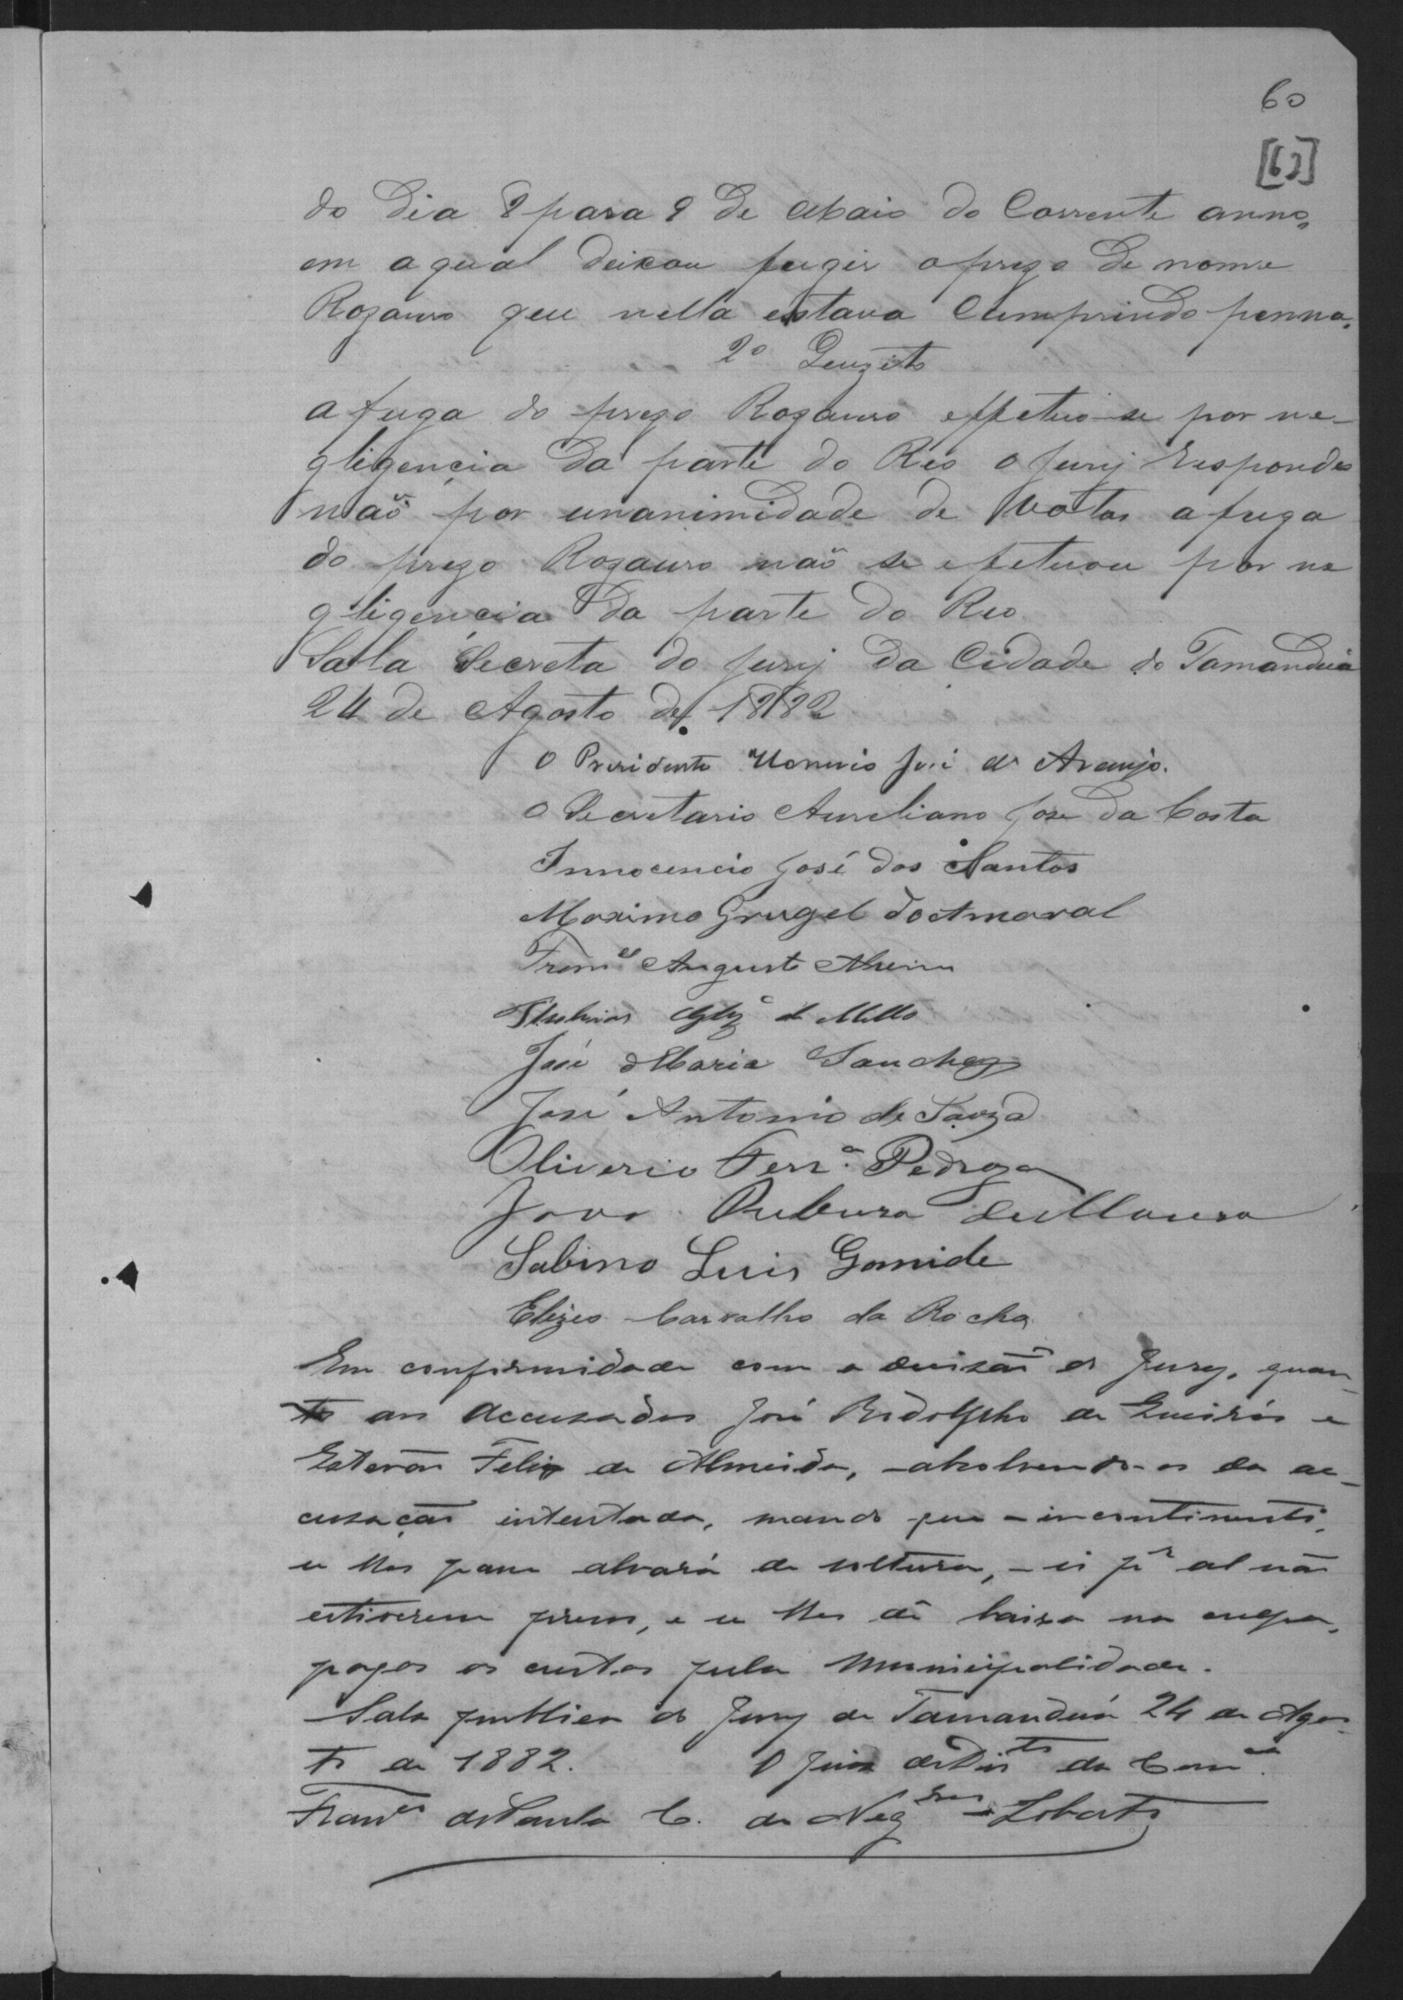 60
[63]
do dia 8 para 9 de Maio do Corrente anno,
em a qual deixou fugir o prezo de nome
Rozauro que nella estava Cumprindo penna.
2º Quezito
a fuga do prezo Rozauro effetuo-se por ne-
gligencia da parte do Reo o Jury Responde
não por unanimidade de Votos a fuga
do prezo Rozauro não se efetuou por ne
gligencia da parte do Reo.
Salla Secreta do Jury da Cidade do Tamanduá
24 de Agosto de 1882
O Presidente José de Araujo.
O Secretario Aureliano Jose da Costa
Innocencio José dos Santos
Maximo Grugel do Amaral
Augusto
de Mello
José Maria Sanches
José Antonio de Souza
Oliverio Ferrª. Pedroza
Sabino Luis Gomide
Elizeo Carvalho da Rocha
Em conformidade com a decisão do Jury, quan-
to aos accusados José Rodolpho de Queirós e
Estevão Felix de Almeida, absolvendo-os da ac-
cusação intentada, mando que incontinenti,
se lhes passe alvará de soltura, si pr al não
estiverem presos, e se lhes dê baixa na culpa,
pagas as custas pela Municipalidade.
Sala publica do Jury de Tamanduá 24 de Agos-
to de 1882. O Juiz de Dirto da Comca.
Franco de Paula C. de Negros Lobato